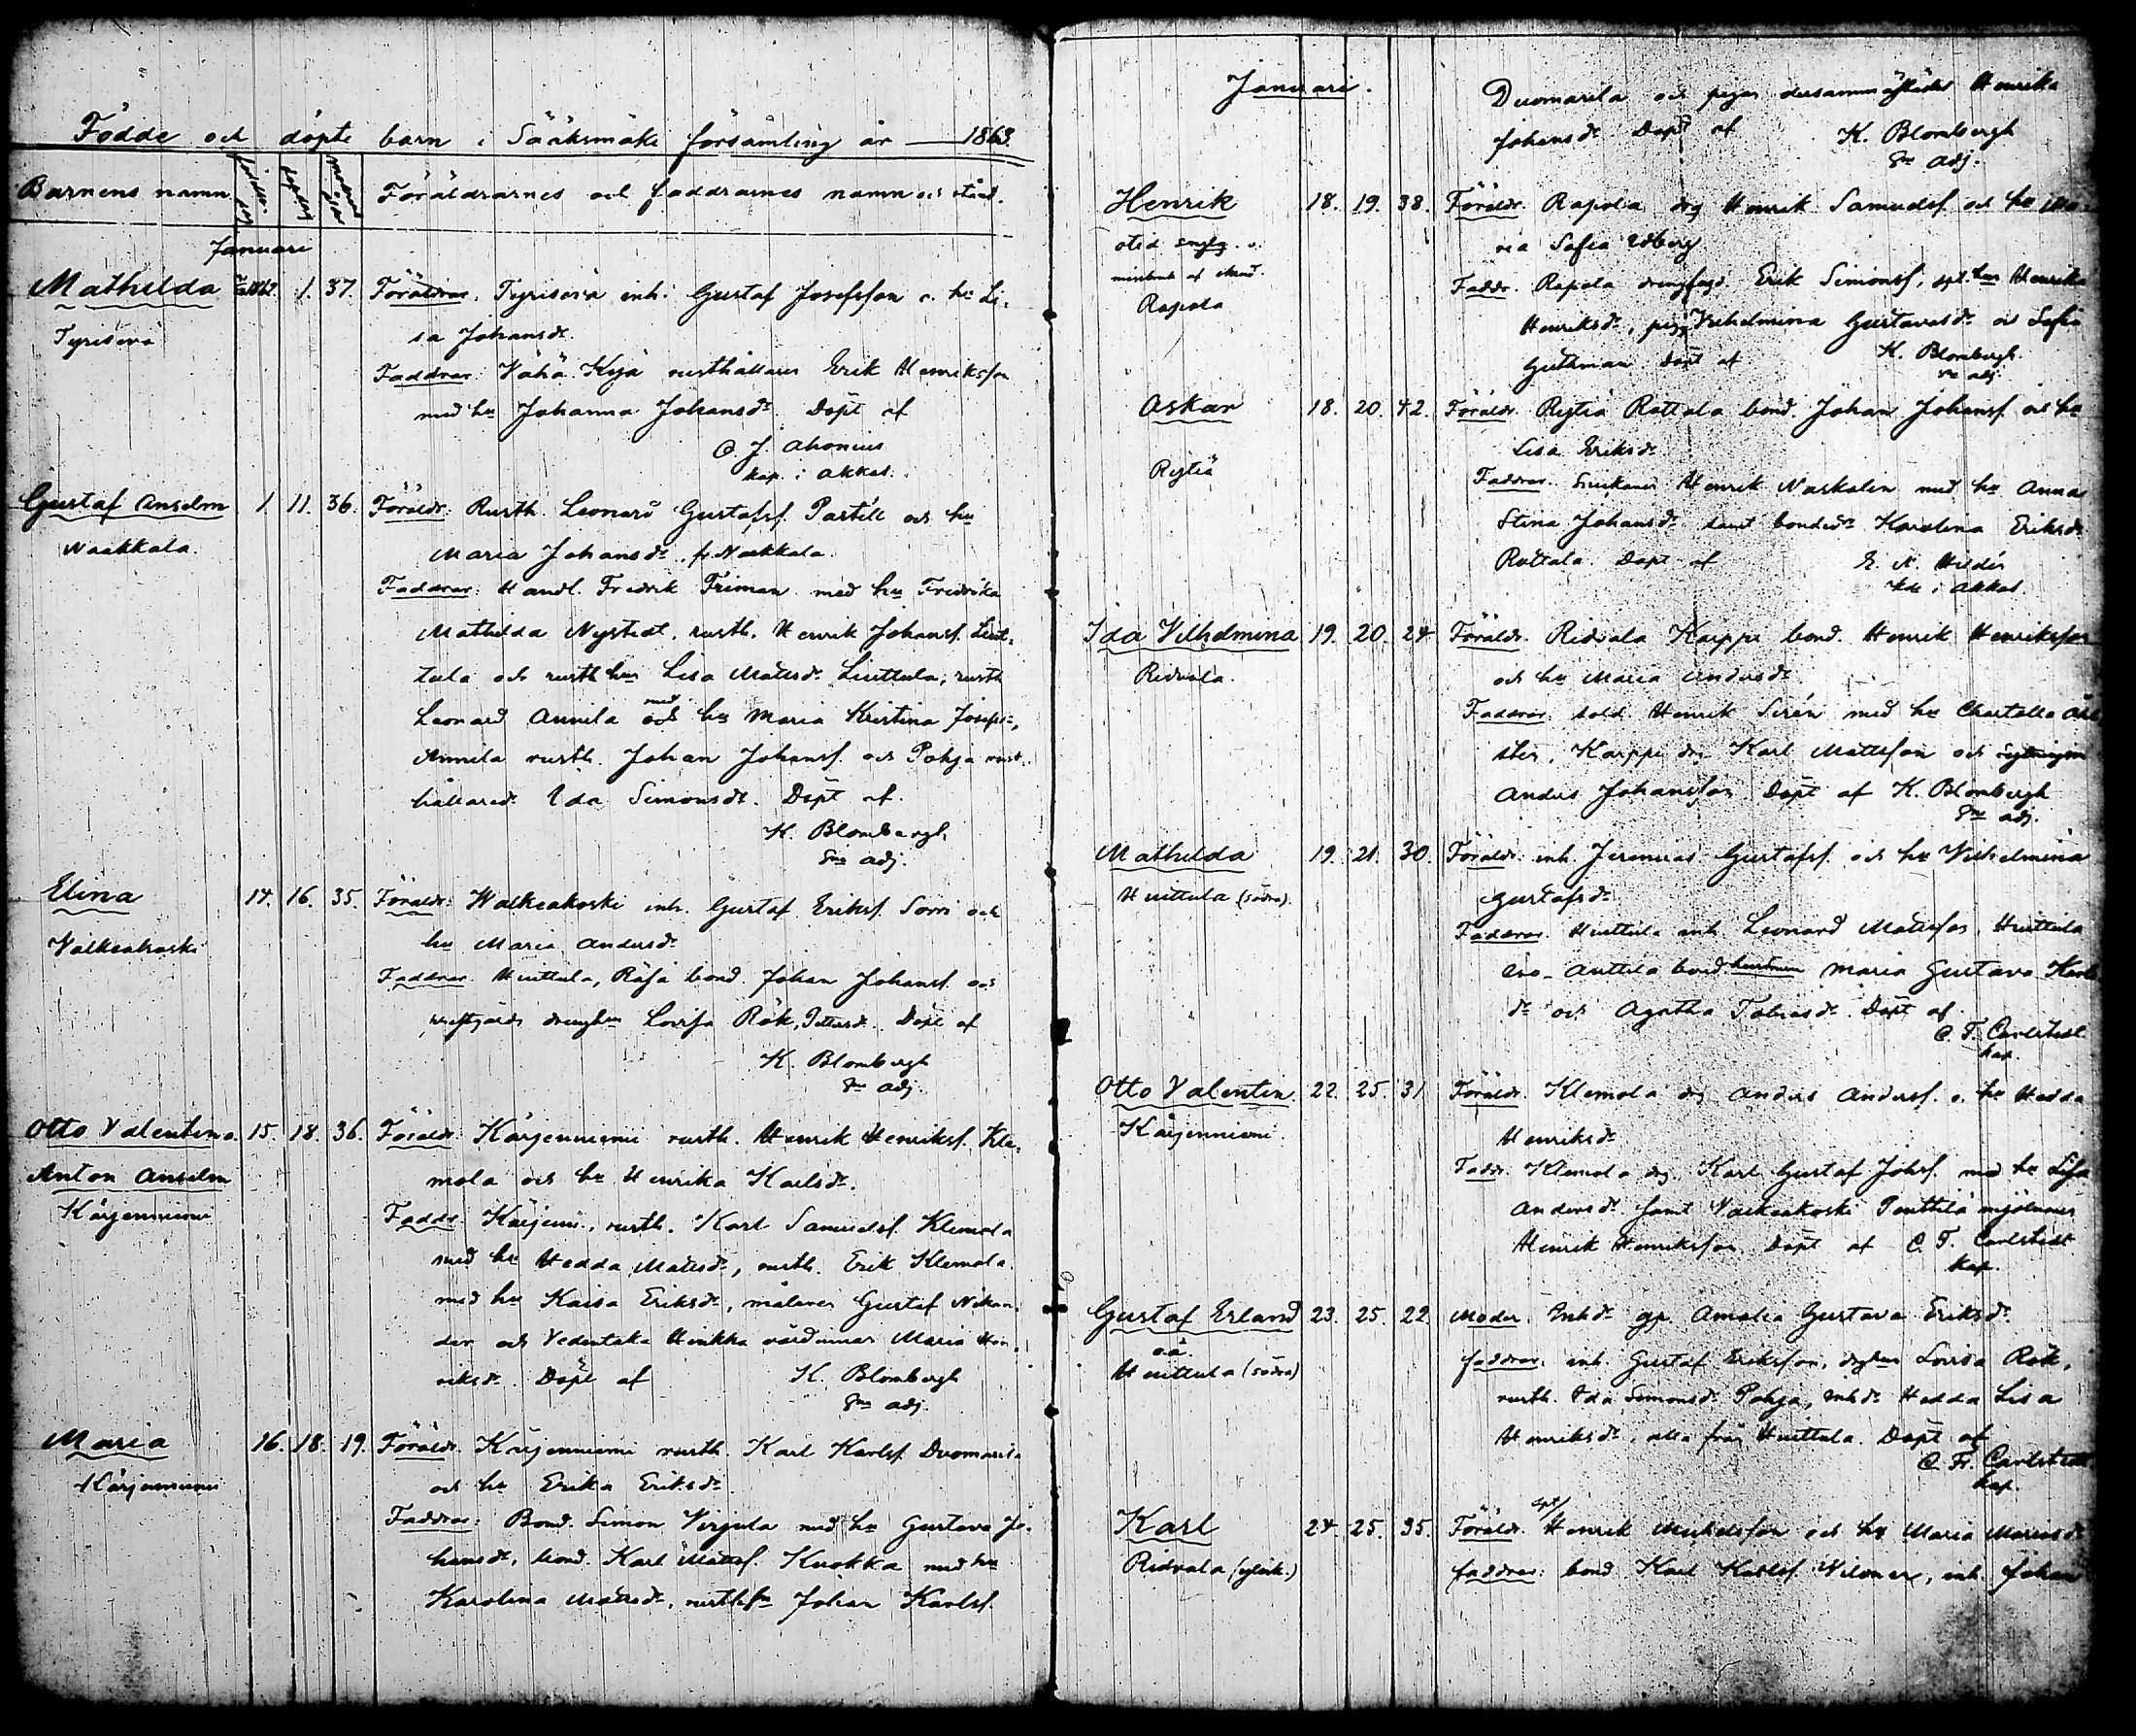 Födde och döpte barn i Sääksmäki församling år 1863.
Barnens namn. Föräldrarnes och faddrarnes namn och stånd.
Januari
Mathilda 1. 37. Föräldrar. Tyrisevä inh. Gustaf Josefsson o. hu Li-
Tyrisevä sa Johansdr.
Faddrar: Vähä Kyjä rusthållaren Erik Henriksson
med hu Johanna Johansdr. Döpt af
C. J. Ahonius
kap. i Akkas.
Gustaf Anselm 1. 11. 36. Föräldr: Rusth. Leonard Gustafsf. Partill och hu
Naakkala. Maria Johansdr. fr. Naakkala.
Faddrar: Handl. Fredrik Friman med hu Fredrika
Mathilda Nystedt, rusth. Henrik Johansf. Liut-
tula och rusth. hu Lisa Matsdr. Liuttula, rusth
Leonard Annila och med hu Maria Kristina Josefsdr.,
Annila rusth. Johan Johansf. och Pohja rust-
hållaredr. Ida Simonsdr. Döpt af.
K. Blombergh
Sne adj.
Elina 14. 16. 35. Föräldr: Walkeakoski inh. Gustaf Eriksf. Sorri och
Valkeakoski hu Maria Andersdr.
Faddrar. Huittula, Räfsä bond. Johan Johansf. och
drenghu Lovisa Rök, Pettersdr. Döpt af
K. Blombergh
Sne adj.
Otto Valentin o. 15. 18. 36. Föräldr: Kärjenniemi rusth. Henrik Henriksf. Kle-
Anton Anselm mola och hu Henrika Karlsdr.
Kärjenniemi Faddr. Kärjenn., rusth. Karl Samuelsf. Klemola
med hu Hedda Matsdr., rusth. Erik Klemola.
med hu Kaisa Eriksdr., målaren Gustaf Nikan-
der och Vedentaka Heikka värdinnan Maria Hen-
riksdr. Döpt af K. Blombergh
Sne adj.
Maria 16. 18. 19. Föräldr. Kärjenniemi rusth. Karl Karlsf. Duomarila
Kärjenniemi och hu Erika Eriksdr.
Faddrar: Bond. Simon Virjula med hu Gustava Jo-
hansdr., bond. Karl Mattsf. Kuokka med hu
Karolina Matsdr., rusthfn Johan Karlsf.
Januari.
Duomarila och pigan dersammastädes Henrika
Johansdr. Döpt af K. Blombergh
Sne adj.
Henrik 18. 19. 38. Föräldr. Rapola drg Henrik Samuelsf. och hu Ma-
ria Sofia Edberg
Rapola Faddr. Rapola drengfogd. Erik Simonsf., hu Henrika
Henriksdr., pig. Vilhelmina Gustavasdr. och Sofia
Guthman Döpt af K. Blombergh.
Sne adj.
Oskar 18. 20. 42. Föräldr. Rytiä Rottala bond. Johan Johansf. och hu
Lisa Eriksdr.
Rytiä Faddrar. Henrik Naskalin med hu Anna
Stina Johansdr. samt bondedr. Karolina Eriksdr.
Rottala. Döpt af E. N. Hildén
i Akkas.
Ida Vilhelmina 19. 20. 24. Föräldr. Ridvala Karppi bond. Henrik Henriksson
Ridvala. och hu Maria Andersdr.
Faddrar. sold. Henrik Sirén med hu Charlotta
Karppi drg Karl Mattsson och
Anders Johansson Döpt af K. Blombergh
Sne adj.
Mathilda 19. 21. 30. Föräldr. inh. Jeremias Gustafsf. och hu Vilhelmina
Huittula (södra). Gustafsdr.
Faddrar. Huittula inh. Leonard Matsson, Huittula
Iso-Anttila bond. Maria Gustava Karls-
dr. och Agatha Tobiasdr. Döpt af
C. F. Carlstedt
kap.
Otto Valentin 22. 25. 31. Föräldr. Klemola drg Anders Andersf. o. hu Hedda
Kärjenniemi. Henriksdr.
Faddr. Klemola drg. Karl Gustaf Johsf. med hu Lisa
Andersdr. samt Valkeakoski Penttilä mjölnaren
Henrik Henriksson. Döpt af C. F. Carlstedt
kap.
Gustaf Erland 23. 25. 22. Moder. Inhdr. pg. Amalia Gustava Eriksdr.
o.ä.
Huittula (södra) faddrar: inh. Gustaf Eriksson, drghu Lovisa Rök,
rusth. Ida Simonsdr. Pohja, inhdr. Hedda Lisa
Henriksdr. alla från Huittula. Döpt af
C. Fr. Carlstedt
kap.
Karl 24. 25. 35. Föräldr. Henrik Mikelsson och hu Maria Mariasdr.
Ridvala faddrar: bond Karl Karlsf. Wilonen, inh. Johan